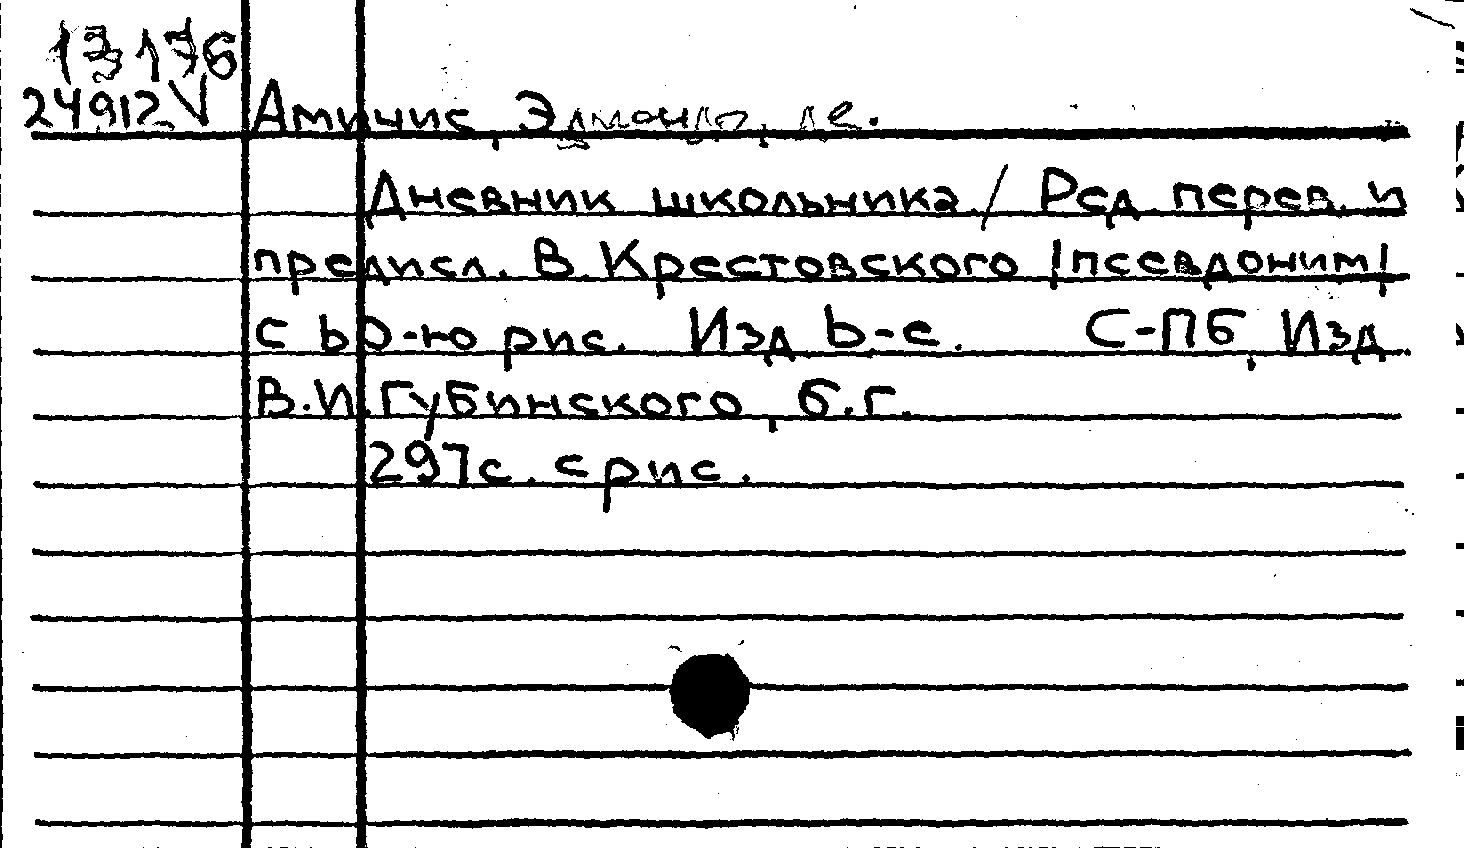 13176
24912 V Амичис, Эдмондо, де.
Дневник школьника / Ред. перев. и
предисл. В. Крестовского /псевдоним/
с 60-ю рис. Изд 6-е. С-ПБ, Изд.
В.И. Губинского, б.г.
297с. с рис.